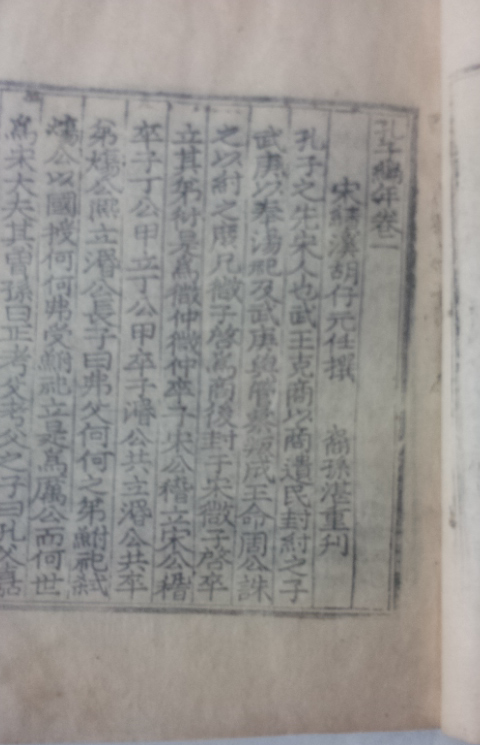 孔子編年卷一
宋績溪胡仔元任撰 裔孫湛重刋
孔子之先宋人也武王克商以商遺民封紂之子
武庚以奉湯祀及武庚與管蔡叛成王命周公誅
之以紂之庶兄微子啓爲商後封于宋微子啓卒
立其弟衍是爲微仲微仲卒子宋公稽立宋公稽
卒子丁公甲立丁公甲卒子湣公共立湣公共卒
弟煬公熙立湣公長子曰弗父何何之弟鮒祀弑
煬公以國授何何弗受鮒祀立是爲厲公而何世
爲宋大夫其曾孫曰正考父考父之子曰孔父嘉